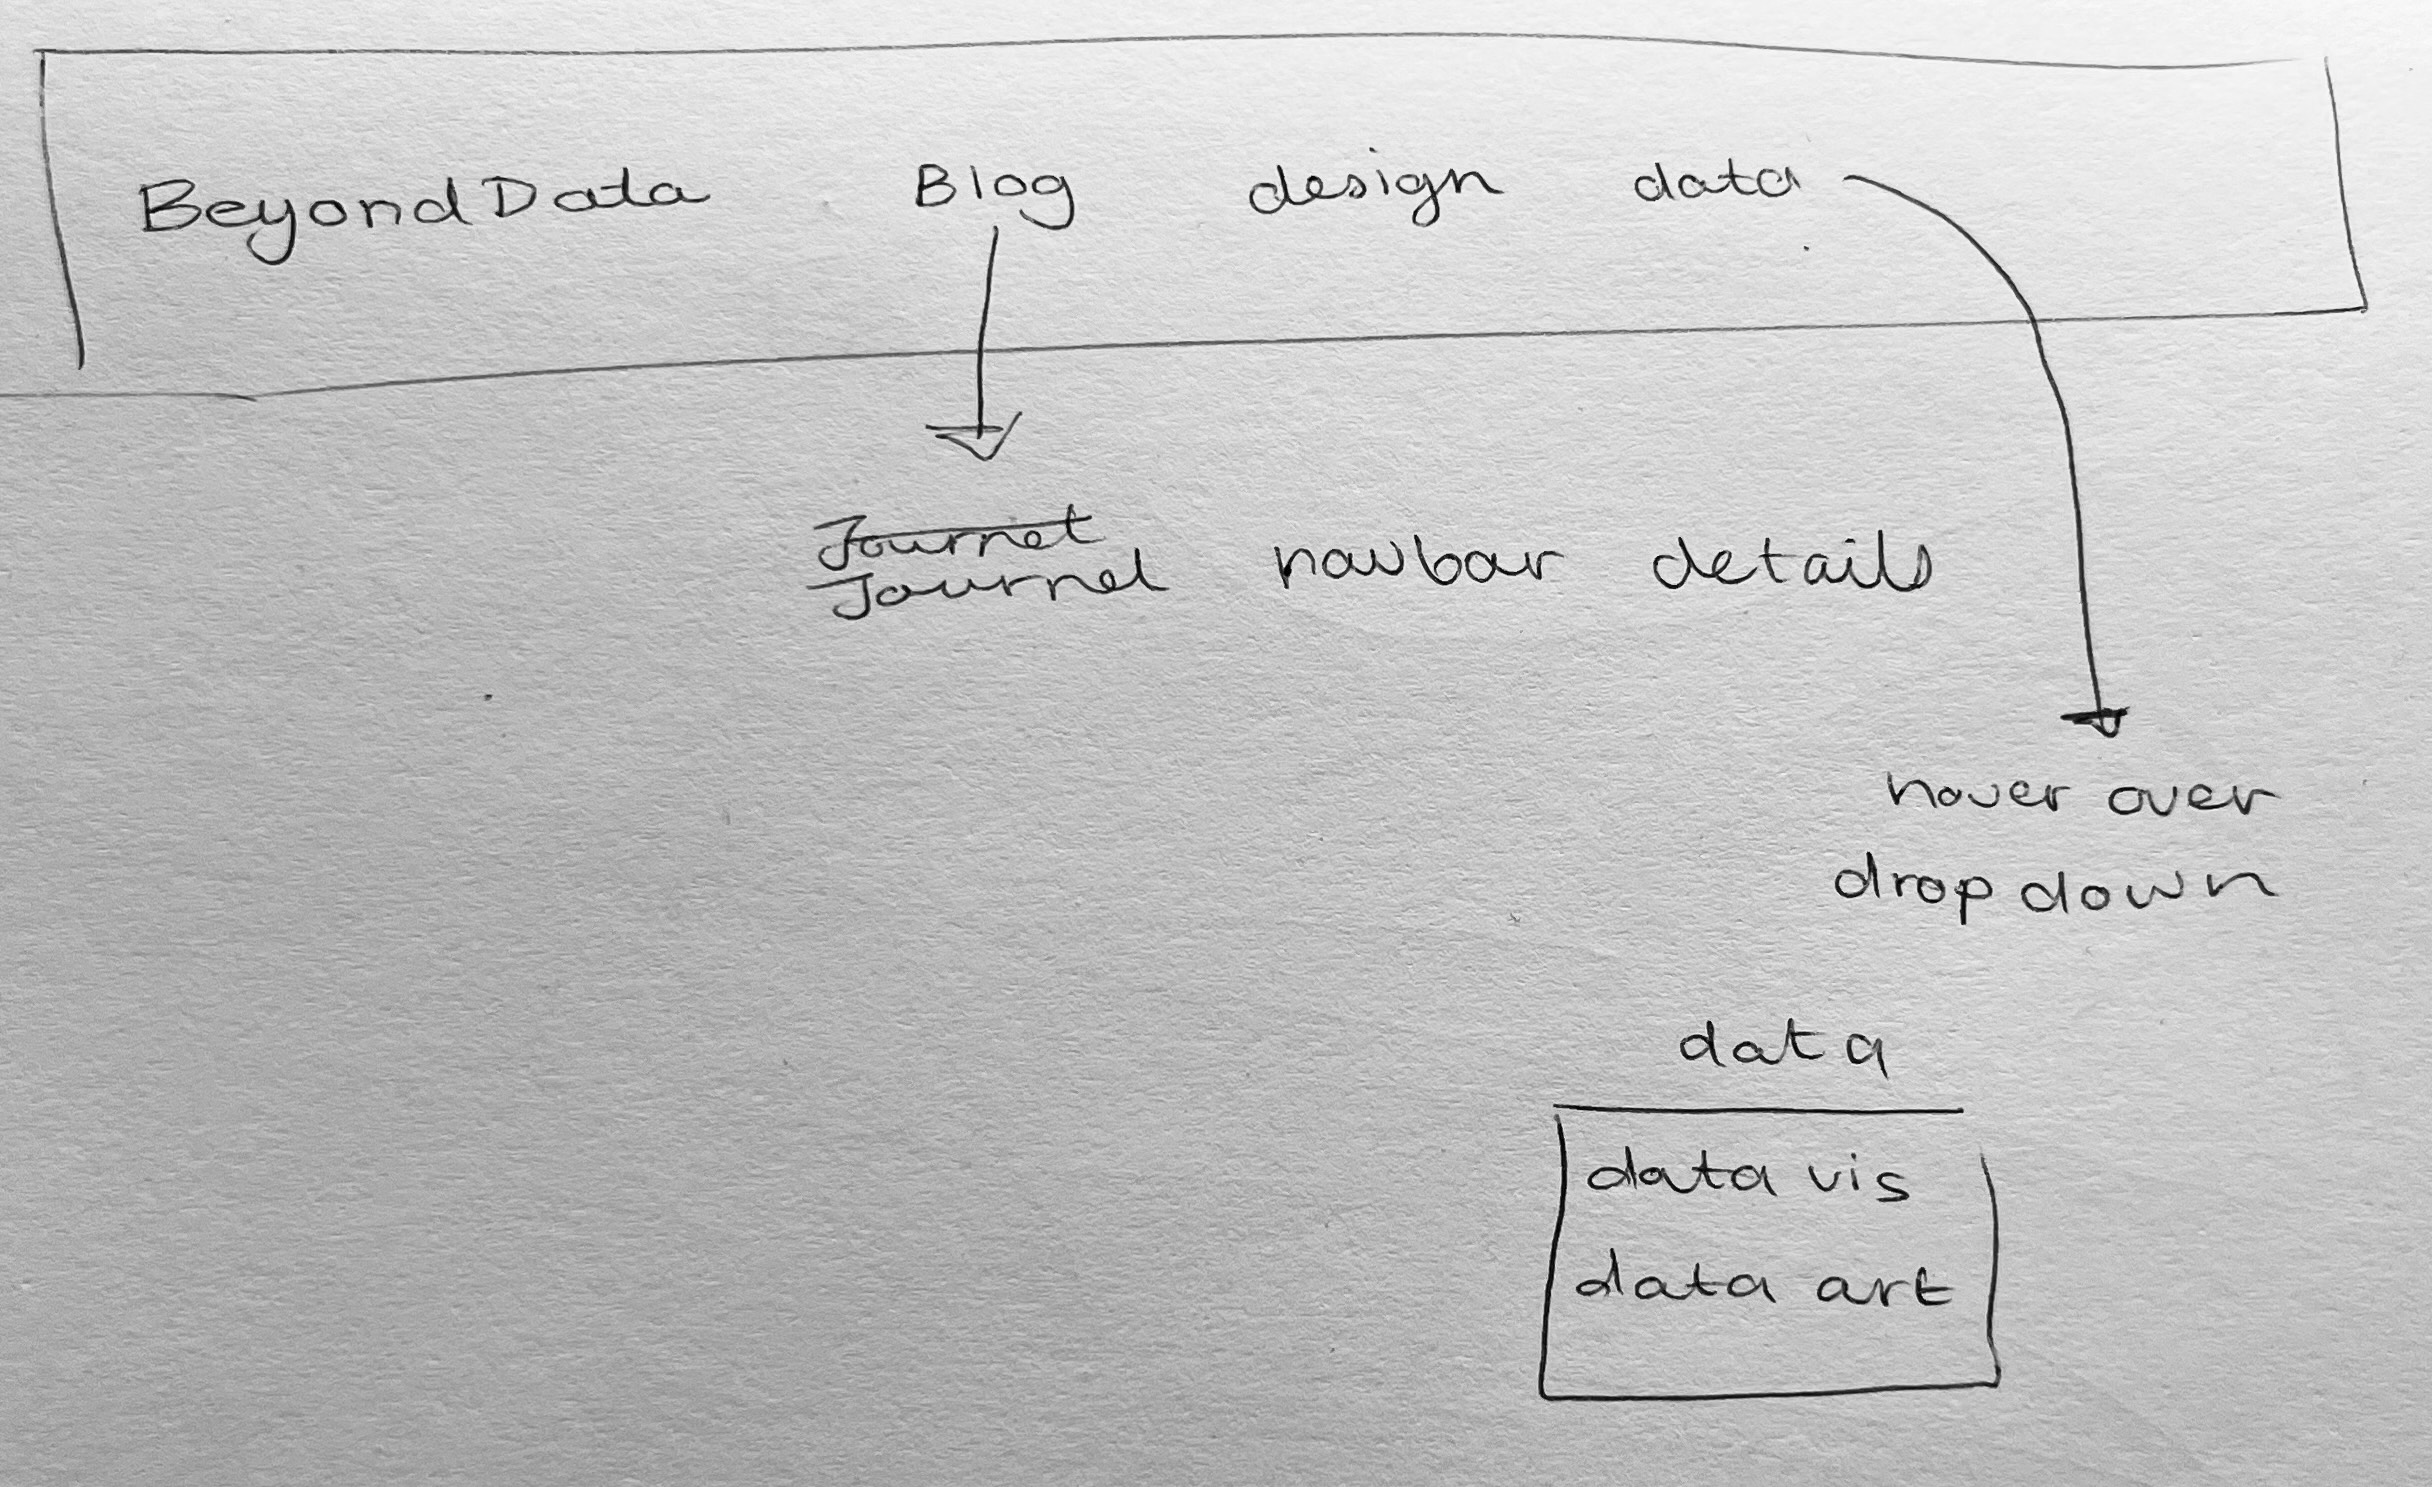 Beyond Data Blog design data
Journet
Journel navbar details
hover over
drop down
data
data vis
data art